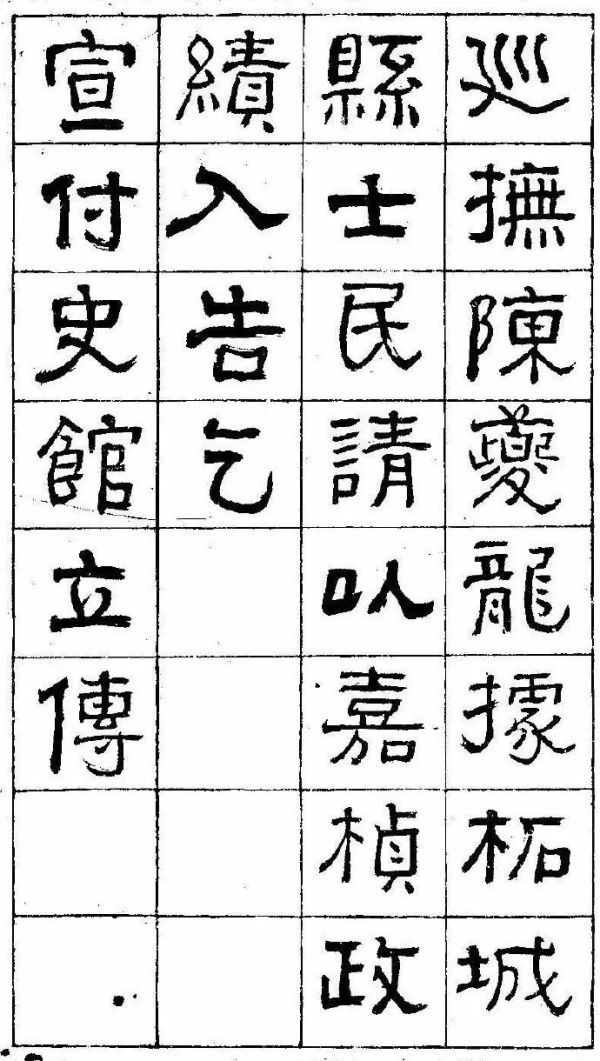 巡撫陳夔龍據柘城
縣士民請以嘉楨政
績入告乞
宣付史館立傳